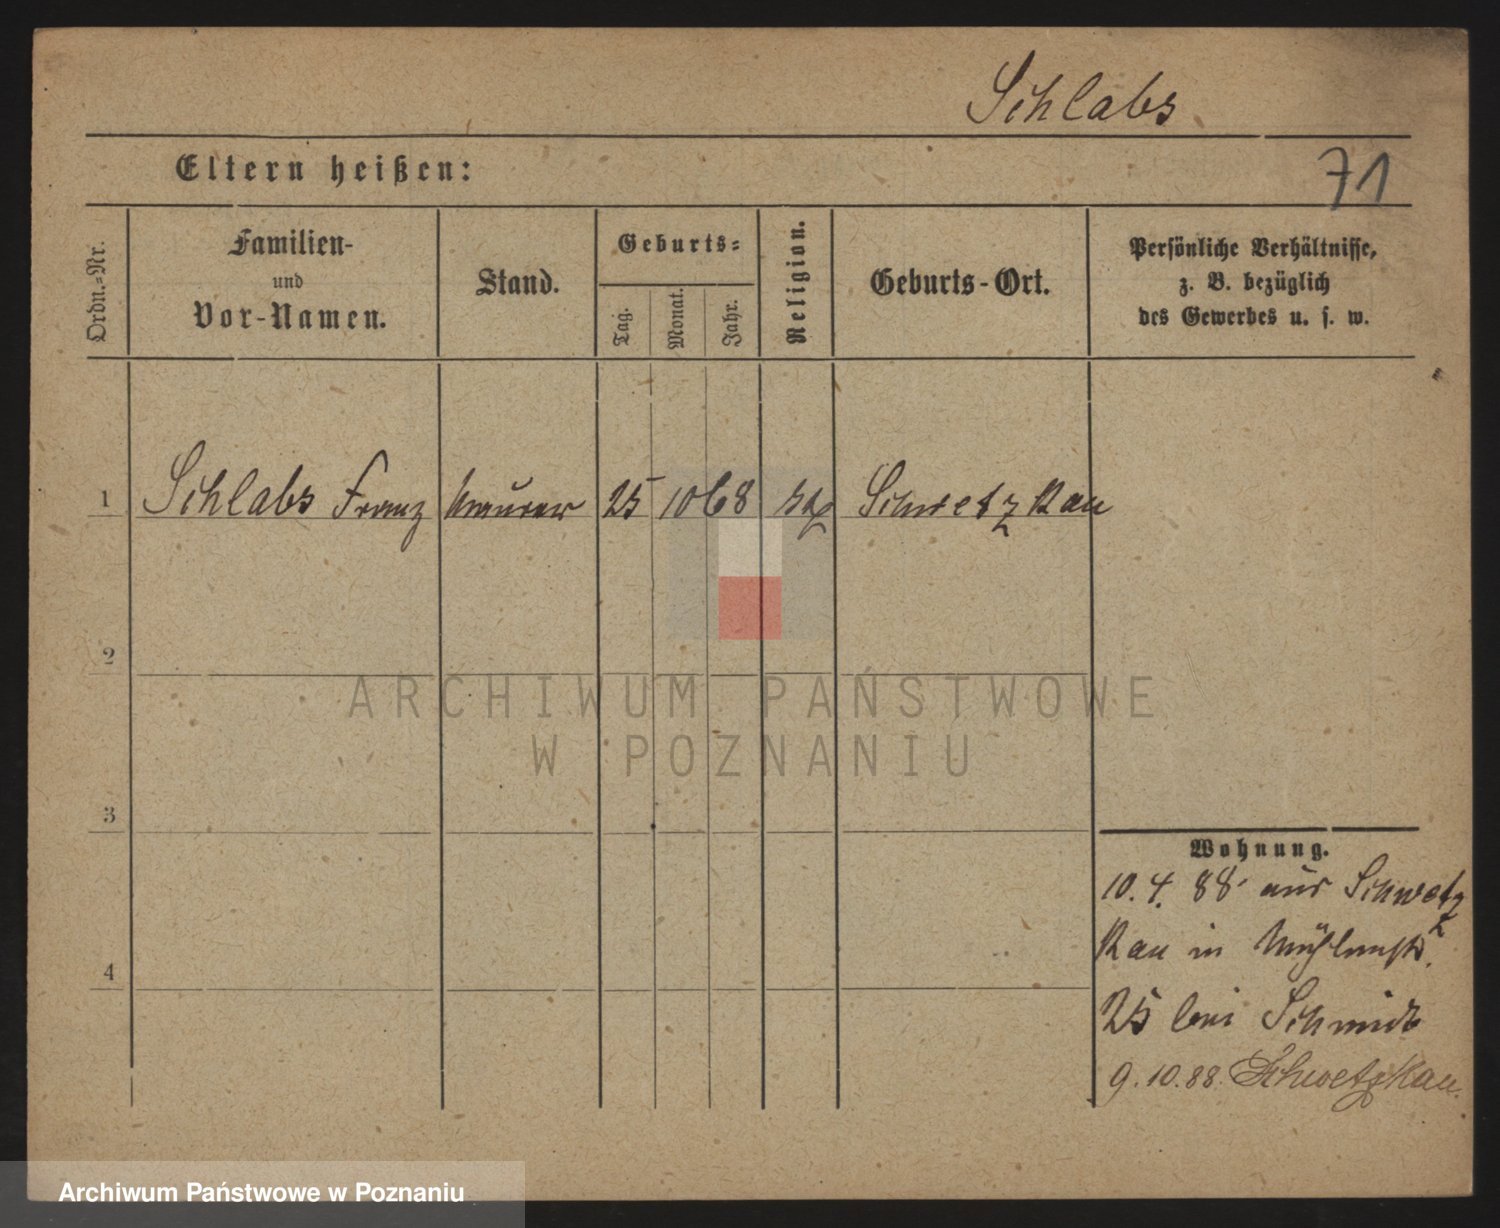 Schlabs
Eltern heißen:
71
Ordn.-Nr.
Familien-
und
Vor-Namen.
Stand.
Geburts-
Tag.
Monat.
Jahr.
Religion.
Geburts-Ort.
Persönliche Verhältnisse,
z. B. bezüglich
des Gewerbes u. s. w.
1 Schlabs Franz Maurer 25 10 68 kt Schwetzkau
2
ARCHIWUM PAŃSTWOWE
W POZNANIU
3
Wohnung.
10.4.88 aus Schwetz
kau in Mühlenstr.
4
25 bei Schmidt
9.10.88. Schwetzkau.
Archiwum Państwowe w Poznaniu